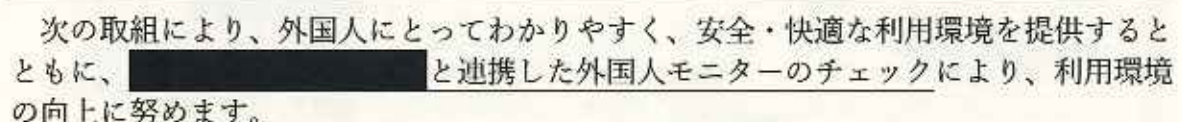 次の取組により、外国人にとってわかりやすく、安全・快適な利用環境を提供すると
ともに、と連携した外国人モニターのチェックにより、利用環境
の向上に努めます。